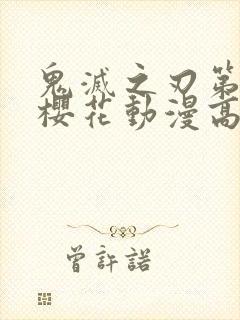 鬼滅之刃第
櫻花動漫高
曾許諾